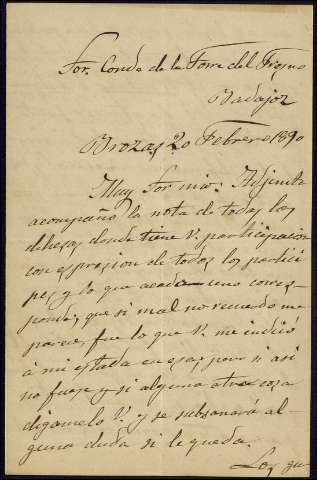 Sor. Conde de la Torre del Fresno
Badajoz
Brozas 20 Febrero 1890
Muy Sor mio: Adjunta
acompaño la nota de todas las
dehesas donde tiene V. participacion
con espresion de todos los partici
pes, y lo que acada uno corres-
ponde, que si mal no recuerdo me
parece, fue lo que V. me indicó
á mi estada en esa; pero si asi
no fuese y si alguna otra cosa
digamelo V. y se subsanará al-
guna duda si le queda.
Los